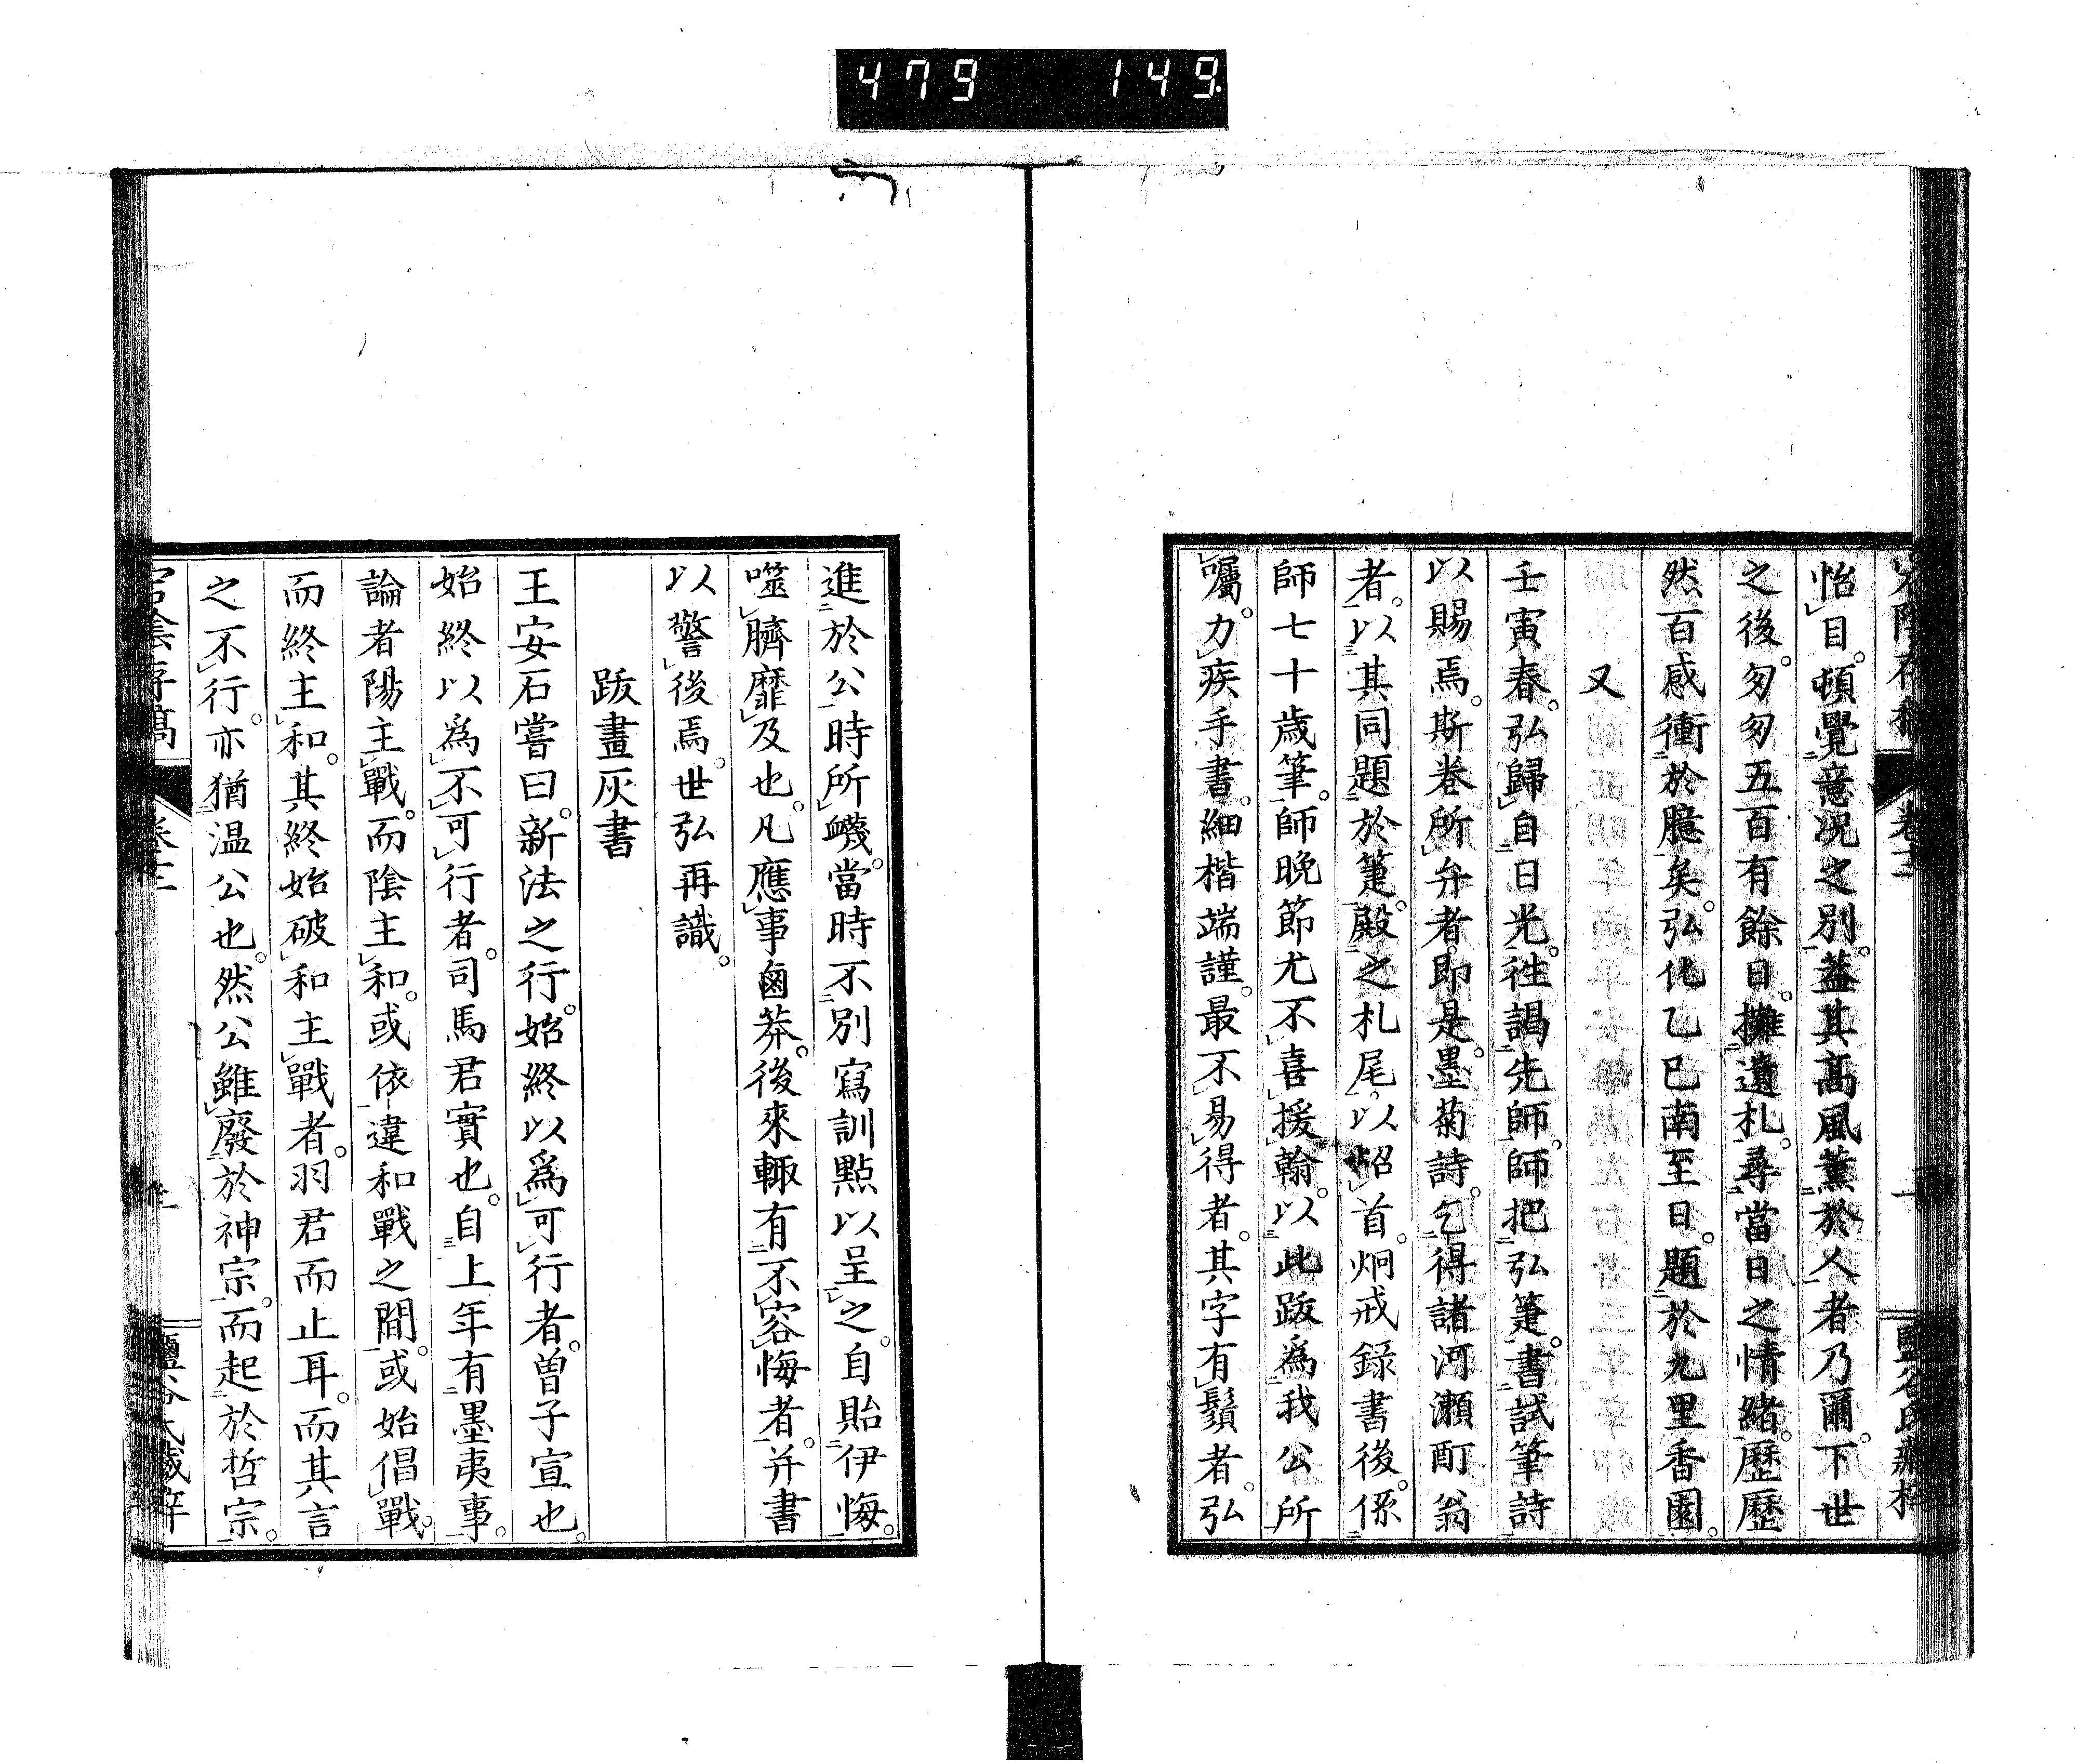 479 149
怡目。頓覺意況之別。蓋其高風薰於人者乃爾。下世
之後。匆匆五百有餘日。擁遺札。尋當日之情緒。歷歷
然百感衝於臆矣。弘化乙巳南至日。題於九里香園。
又
壬寅春。弘歸自日光。徃謁先師。師把弘箑。書試筆詩
以賜焉。斯卷所弁者。即是。墨菊詩。乞得諸河瀨酊翁
者。以其同題於箑。殿之札尾。以炤首。炯戒録書後。係
師七十歳筆。師晩節尤不喜援翰。以此跋爲我公所
囑。力疾手書。細楷端謹。最不易得者。其字有鬚者。弘
進於公時所衊。當時不別寫訓點以呈之。自貽伊悔。
噬臍靡及也。凡應事鹵莽。後來輙有不容悔者。并書
以警後焉。世弘再識。
跋畫灰書
王安石嘗曰。新法之行。始終以爲可行者。曽子宣也。
始終以爲不可行者。司馬君實也。自上年有墨夷事。
論者陽主戰。而陰主和。或依違和戰之間。或始倡戰。
而終主和。其終始破和主戰者。羽君而止耳。而其言
之不行。亦猶温公也。然公雖廢於神宗。而起於哲宗。
宕陰存稿 卷十二 鹽谷氏藏梓